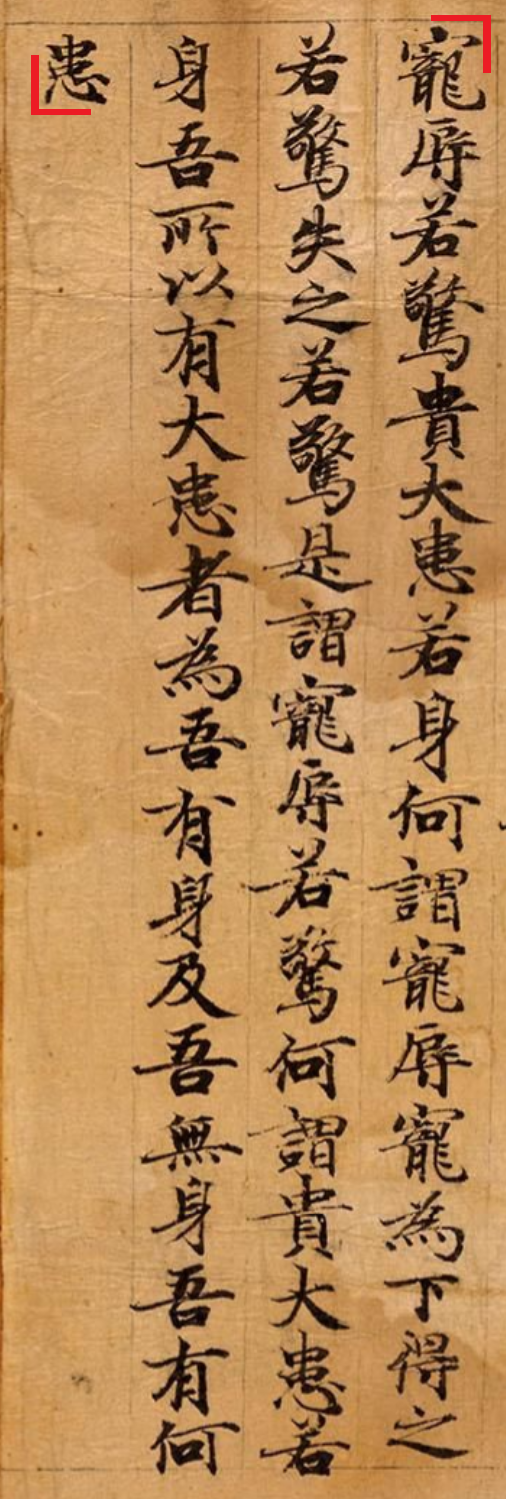 寵辱若驚貴大患若身何謂寵辱寵為下得之
若驚失之若驚是謂寵辱若驚何謂貴大患若
身吾所以有大患者為吾有身及吾無身吾有何
患